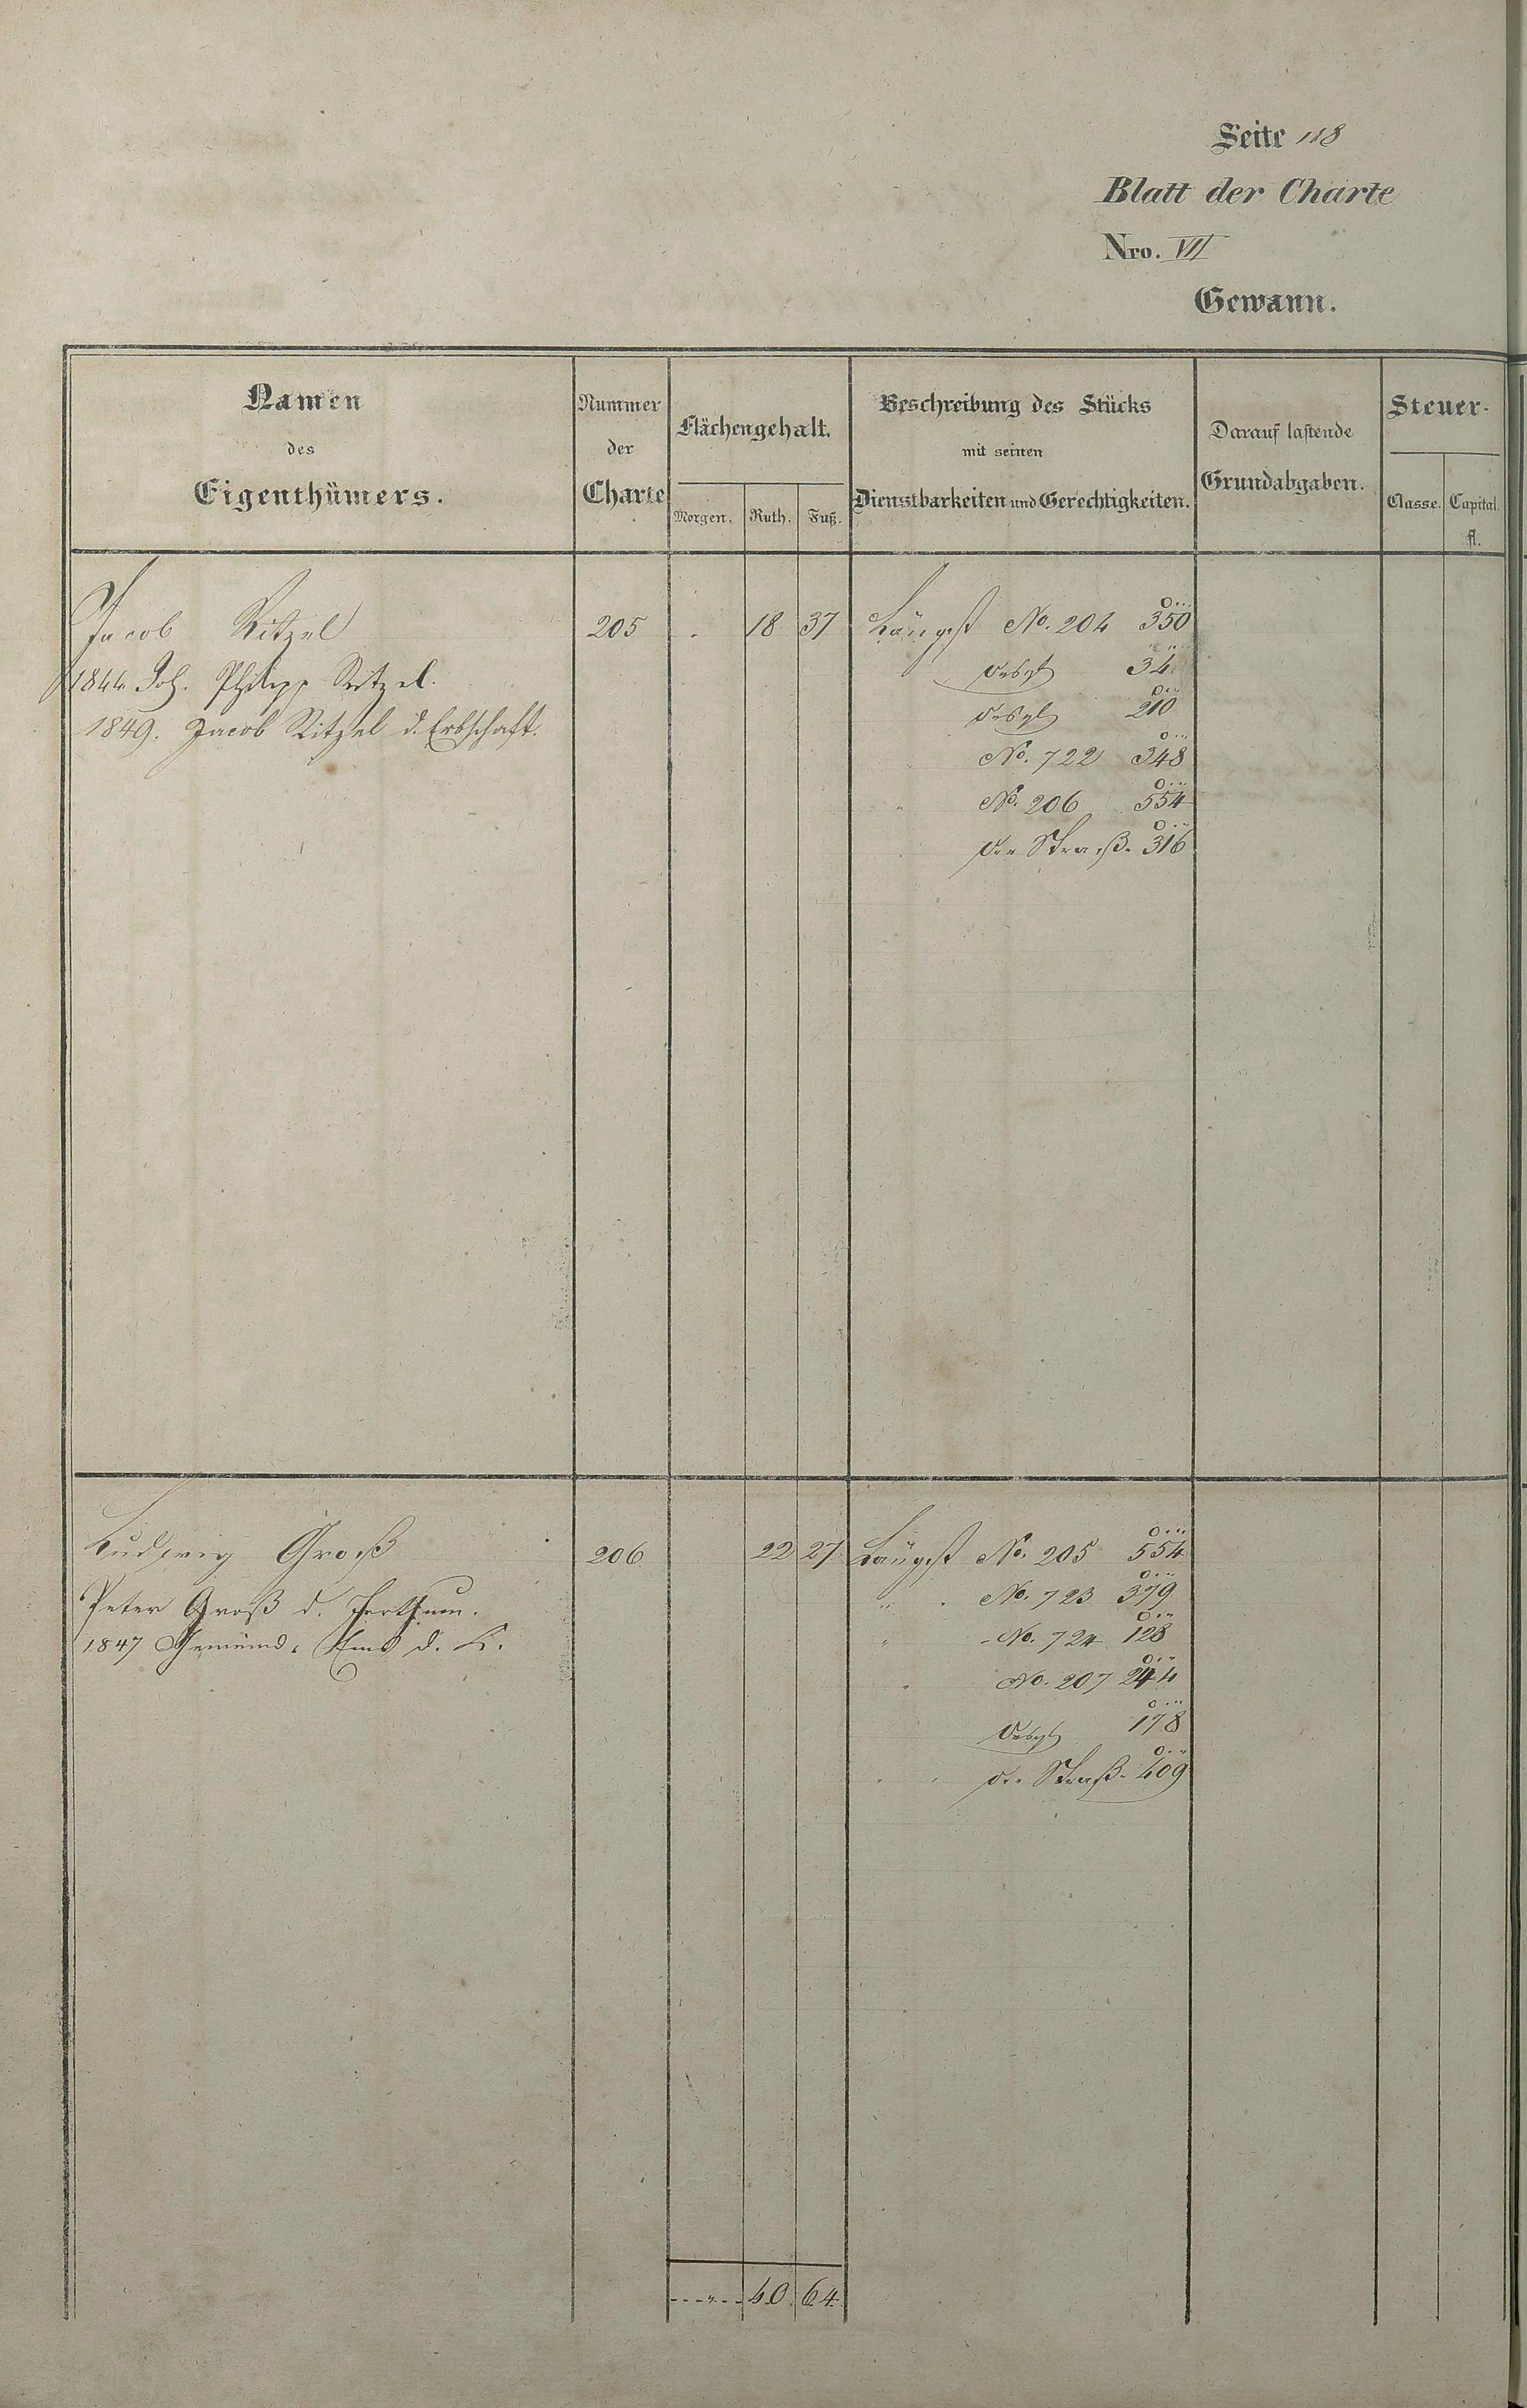 Seite 118
Blatt der Charte
Nro. VII
Gewann.
Namen
des
Eigenthümers.
Nummer
der
Charte
Flächengehalt.
Morgen. Ruth. Fuß.
Beschreibung des Stücks
mit seinen
Dienstbarkeiten und Gerechtigkeiten.
Darauf lastende
Grundabgaben.
Steuer-
Classe. Capital.
fl.
Jacob Ritzel 205 . 18 37 Längst No. 204 350
1844 Joh. Philipp Ritzel. desgl 34
1849. Jacob Ritzel d. Erbschaft. desgl 210
No. 722 348
" No. 206 554
der Straße 316
Ludwig Groß 206 22 27 Längst No. 205 554
Peter Groß d. " No. 723 379
1847 Gemeind. Ems d. K. " No. 724 128
" No. 207 244
desgl 178
der Straße 409
" 40 64